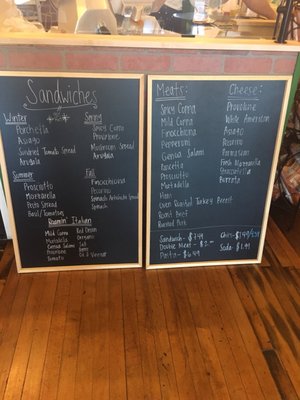 Sandwiches
Winter
Porchetta
Asiago
Sundried Tomato Spread
Arugula
Spring
Spicy Coppa
Provolone
Mushroom Spread
Arugula
Summer
Prosciutto
Mozzarella
Pesto Spread
Basil/Tomatoes
Fall
Finocchiona
Pecorino
Spinach Artichoke Spread
Spinach
Roamin' Italian
Mild Coppa
Mortadella
Genoa Salami
Provolone
Tomato
Red Onion
Oregano
Salt
Oil & Vinegar
Meats:
Spicy Coppa
Mild Coppa
Finocchiona
Pepperoni
Genoa Salami
Pancetta
Prosciutto
Mortadella
Ham
Oven Roasted Turkey Breast
Roast Beef
Roasted Pork
Cheese:
Provolone
White American
Asiago
Pecorino
Parmesan
Fresh Mozzarella
Stracciatella
Burrata
Sandwich - $7.49
Double Meat -
Panini - $8.49
Soda - $1.49